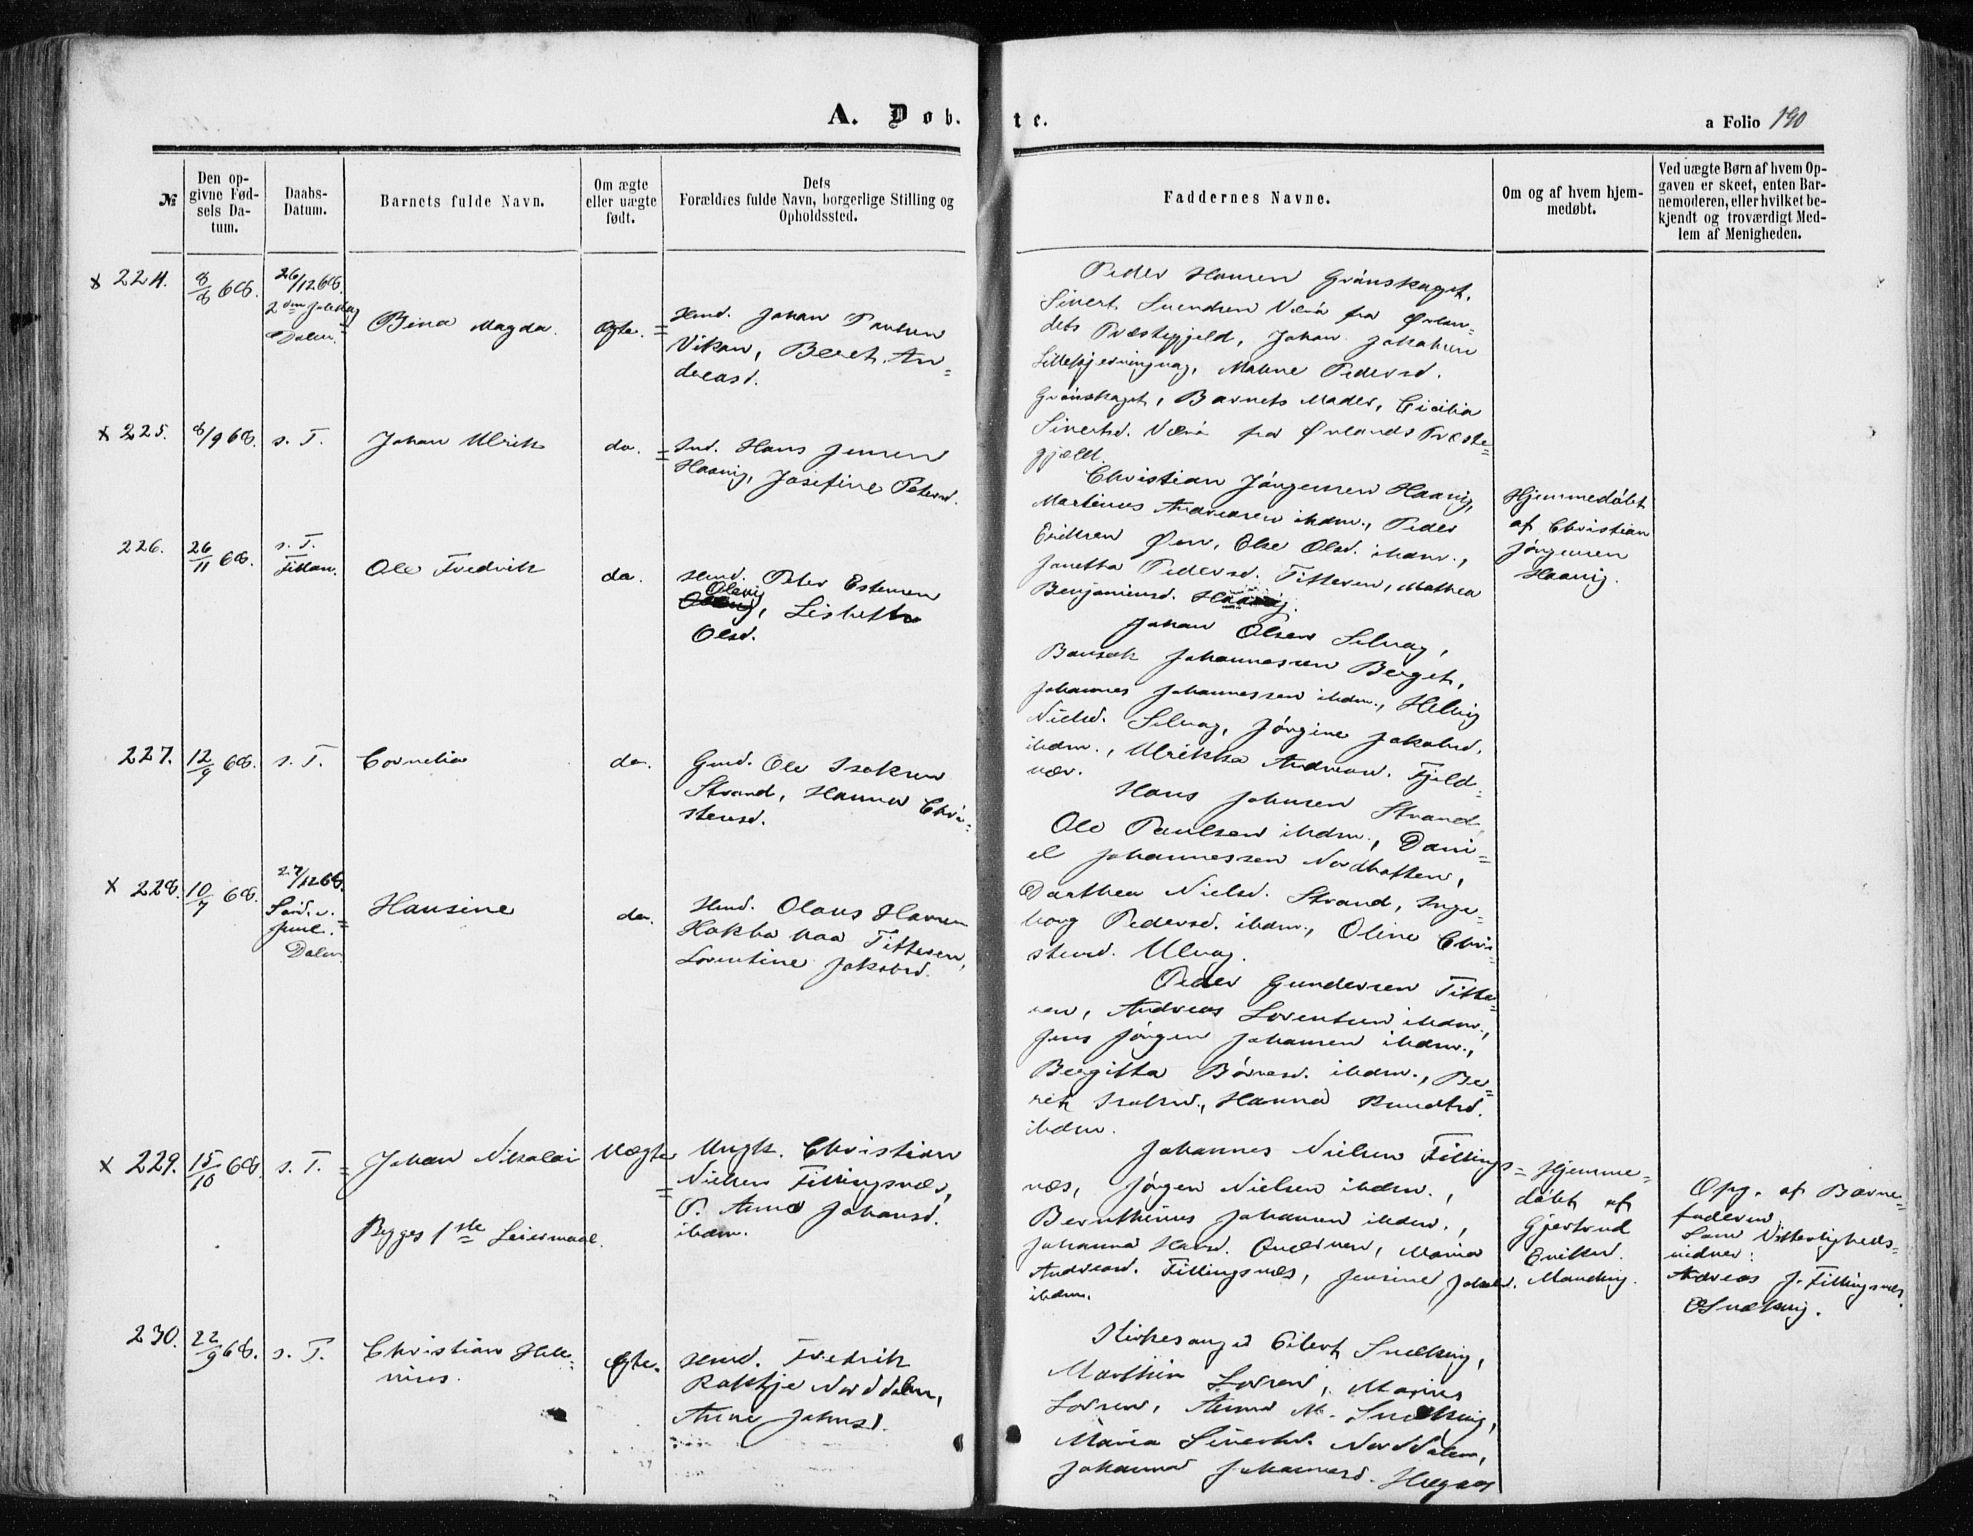 A. Døb-
te.
a Folio 190
№
Den op-
givne Fød-
sels Da-
tum.
Daabs-
Datum.
Barnets fulde Navn.
Om ægte
eller uægte
født.
Dets
Forældres fulde Navn, borgerlige Stilling og
Opholdssted.
Faddernes Navne.
Om og af hvem hjem-
medøbt.
Ved uægte Børn af hvem Op-
gaven er skeet, enten Bar-
nemoderen, eller hvilket be-
kjendt og troværdigt Med-
lem af Menigheden.
x 224.
8/8 68.
26/12 68.
2den Juledag
Dalen.
Bina Magda.
Ægte.
Hmd. Johan Paulsen
Vikan, Beret An-
dreasd.
Peder Hansen Grønskaget,
Sivert Svendsen Værø fra Ørlan-
dets Præstegjeld, Johan Jakobsen
Malene Pedersd.
Grønskaget, Barnets Moder, Cicilia
Sivertsd. Værø fra Ørlandets Præste-
gjæld.
x 225.
8/9 68.
s. T.
Johan Ulrik
do.
Ind. Hans Jensen
Haavig, Josefine Petersd.
Christian Jørgensen Haavig,
Martinus Andreasen ibdm., Peder
Eriksen Øen, Else Olsd. ibdm.,
Janetta Pedersd. Titteren, Mathea
Benjaminsd. Haavig.
Hjemmedøbt
af Christian
Jørgensen
Haavig.
226.
26/11 68.
s. T.
Fillan.
Ole Fredrik
do.
Hmd. Peter Estensen
Olsvig, Lisbeth
Olsd.
Johan Olsen Selvag,
Johannessen Berget,
Johannes Johannessen ibdm., Helvig
Nielsd. Selvag, Jørgine Jakobsd.
ibdm., Ulrikka Andreasd. Fjeld-
vær.
227.
12/9 68.
s. T.
Cornelia
do.
Gmd. Ole Isaksen
Strand, Hanna Chri-
stensd.
Hans Johnsen Strand,
Ole Paulsen ibdm., Dani-
el Johannessen Nordhotten,
Dorthea Nielsd. Strand, Inge-
borg Pedersd. ibdm., Oline Chri-
stensd. Ulvag.
x 228.
10/7 68.
27/12 68.
Sønd. e.
Juul.
Dalen
Hansine
do.
Hmd. Olaus Hansen
Hokba paa Titteren,
Lorentine Jakobsd.
Peder Gundersen Titte-
ren, Andreas Lorentsen ibdm.,
Jens Jørgen Johansen ibdm.,
Bergitta Børresd. ibdm., Be-
ret Isaksd., Hanna Knudtsd.
ibdm.
x 229.
15/10 68.
s. T.
Johan Nikolai
Bygges 1ste Leiermaal.
Uægte
Ungk. Christian
Nielsen Fillingsnæs,
P. Anna Johansd.
ibdm.
Johannes Nielsen Fillings-
næs, Jørgen Nielsen ibdm.,
Bernthinus Johansen ibdm.,
Johanna Hansd. Qværnen, Maria
Andreasd. Fillingsnæs, Jensine Jakobsd.
ibdm.
Hjemme-
døbt af
Gjertrud
Eriksd.
Mandvig.
Opg. af Barne-
faderen.
Som Vitterligheds-
vidner:
Andreas J. Fillingsnæs
E. Snekvig.
230.
22/9 68.
s. T.
Christian Hel-
nius.
Ægte.
Hmd. Fredrik
Norddalen,
Anne Johnsd.
Kirkesanger Eilert Snekvig,
Marthin Lossen, Marius
Lossen, Anna M. Snekvig,
Maria Sivertsd. Norddalen,
Johanna Johannesd. Hegaas